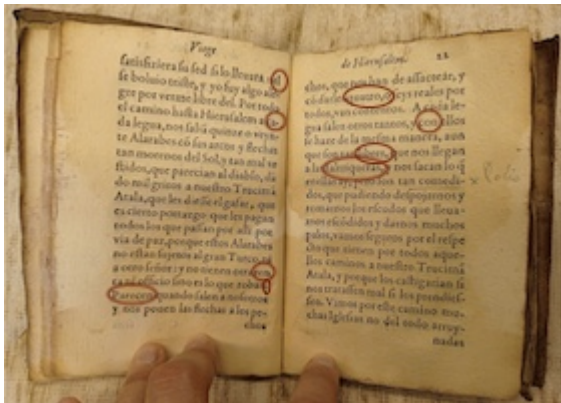 Viage
satisfiziera su sed si lo lleuara, el
se boluio triste, y yo fuy algo ale
gre por verme libre del. Por todo
el camino hasta Hierusalem a ca-
da legua, nos salia quinze o veyn-
te Alarabes con sus arcos y flechas
tan morenos del Sol, y tan mal ve
stidos, que parecian al diablo, da
do mil gritos a nuestro Trucimā
Atala, que les diesse el gafar, que
es cierto portazgo que les pagan
todos los que passan por alli por
via de paz, porque estos Alarabes
no estan sujetos al gran Turco, ni
a otro señor: y no tienen otra ren
ta ni officio sino es lo que roban
Parecen quando salen a nosotros
y nos ponen las flechas a los pe-
chos
de Hierusalem. 22
chos, que nos han de assaetear, y
cō darles quatro, o seys reales por
todos, van contentos. A cada le-
gua salen otros tantos, y con ellos
se haze de la mesma manera, aun
que son tan que nos llegan
a las y nos sacan lo q̄
en ellas ay, pero son tan comedi-
dos, que pudiendo despojarnos y
tomarnos los escudos que lleua-
mos escōdidos y darnos muchos
palos, vamos seguros por el respe
cto que tienen por todos aque-
llos caminos a nuestro Trucimā
Atala, y porque los castigarian si
nos tratassen mal si los prendies-
sen. Vimos por este camino mu-
chas Iglesias no del todo arruy-
nadas